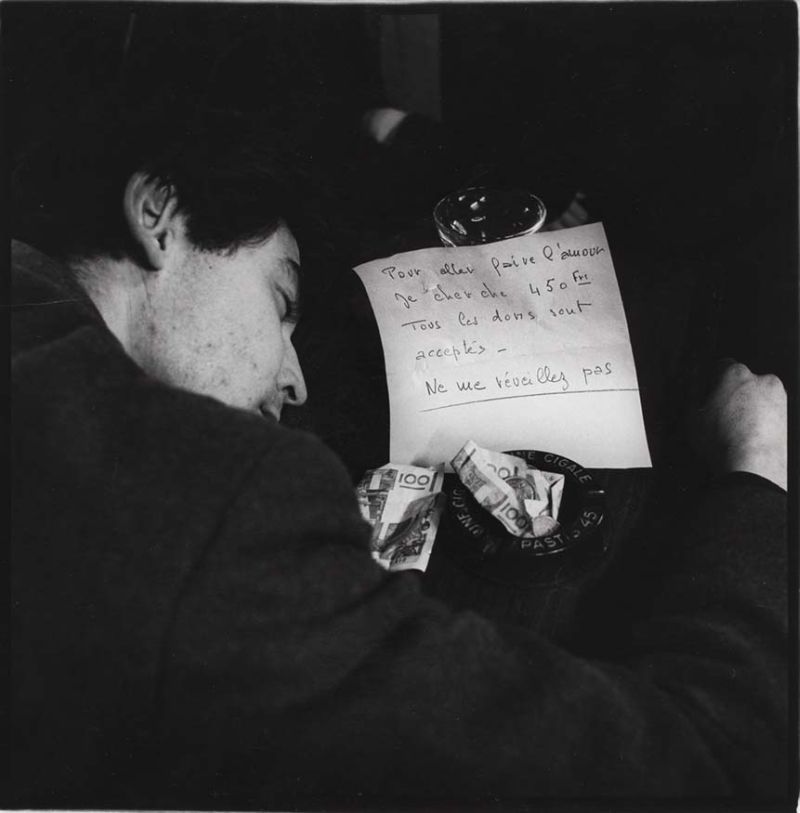 Pour aller faire l'amour
Je cherche 450 Frs
Tous les dons sont
acceptés -
Ne me réveillez pas
100
100
100
UNE CIGALE
PASTIS 45
UNE CIG